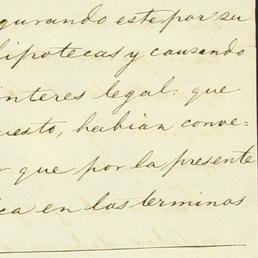 gurando este por su
hipotecas y causando
interes legal: que
uesto, habian conve-
r que por la presente
ca en los terminos